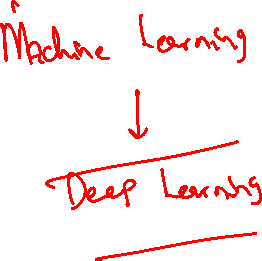 Machine Learning
Deep Learning